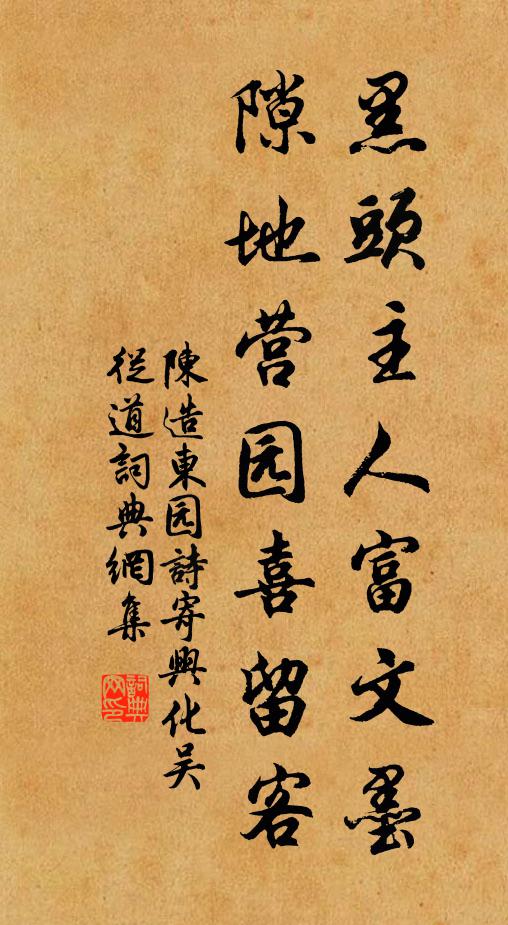 黑頭主人富文墨
隙地营园喜留客
陳造東园詩寄興化吴
從道詞典網集
詞典网印